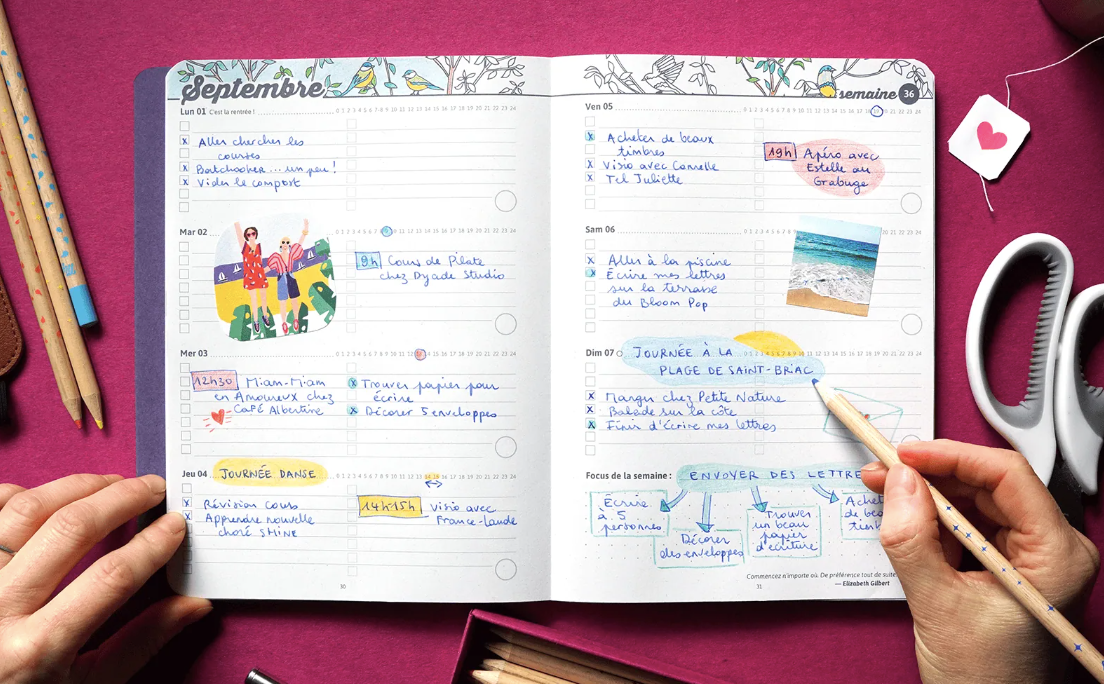 Septembre
Lun 01 C'est la rentrée !
0 1 2 3 4 5 6 7 8 9 10 11 12 13 14 15 16 17 18 19 20 21 22 23 24
x Aller chercher les
courses
x Batchcooker ... un peu !
x Vider le compost
Mar 02
0 1 2 3 4 5 6 7 8 9 10 11 12 13 14 15 16 17 18 19 20 21 22 23 24
9h Cours de Pilate
chez Dyade Studio
Mer 03
0 1 2 3 4 5 6 7 8 9 10 11 12 13 14 15 16 17 18 19 20 21 22 23 24
12h30 Miam-Miam
en Amoureux chez
Café Albertine
x Trouver papier pour
écrire
x Décorer 5 enveloppes
Jeu 04 JOURNÉE DANSE
0 1 2 3 4 5 6 7 8 9 10 11 12 13 14 15 16 17 18 19 20 21 22 23 24
x Révision cours
x Apprendre nouvelle
choré SHINE
14h-15h visio avec
France-Laude
30
semaine 36
Ven 05
0 1 2 3 4 5 6 7 8 9 10 11 12 13 14 15 16 17 18 19 20 21 22 23 24
x Acheter de beaux
timbres
x Visio avec Camelle
x Tel Juliette
19h Apéro avec
Estelle au
Grabuge
Sam 06
0 1 2 3 4 5 6 7 8 9 20 21 22 23 24
x Aller à la piscine
x Écrire mes lettres
sur la terrasse
du Bloom Pop
Dim 07 JOURNÉE À LA
PLAGE DE SAINT-BRIAC
x Manger chez Petite Nature
x Balade sur la côte
x Finir d'écrire mes lettres
Focus de la semaine : ENVOYER DES LETTRE
Écrire
à 5
personnes
Décorer
des enveloppes
Trouver
un beau
papier
d'écriture
Achet
de bea
timb
Commencez n'importe où. De préférence tout de suite
— Elizabeth Gilbert
31